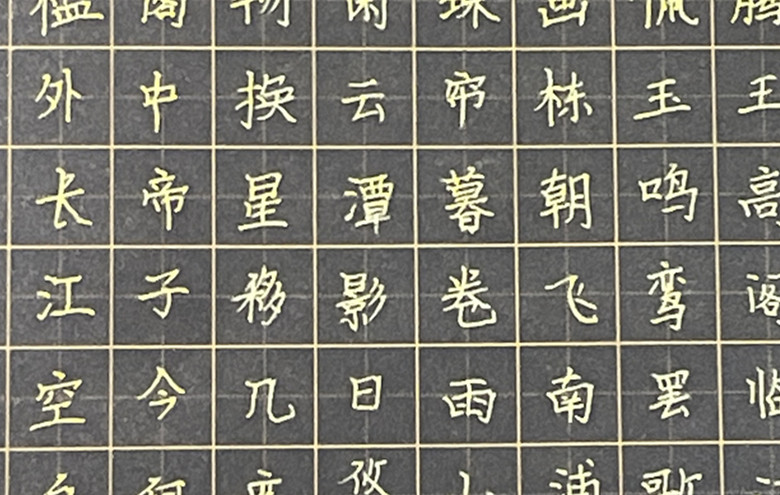 腾王高阁临
佩玉鸣鸾罢歌
画栋朝飞南浦
珠帘暮卷雨
闲云潭影日
物换星移几度
阁中帝子今何
槛外长江空自